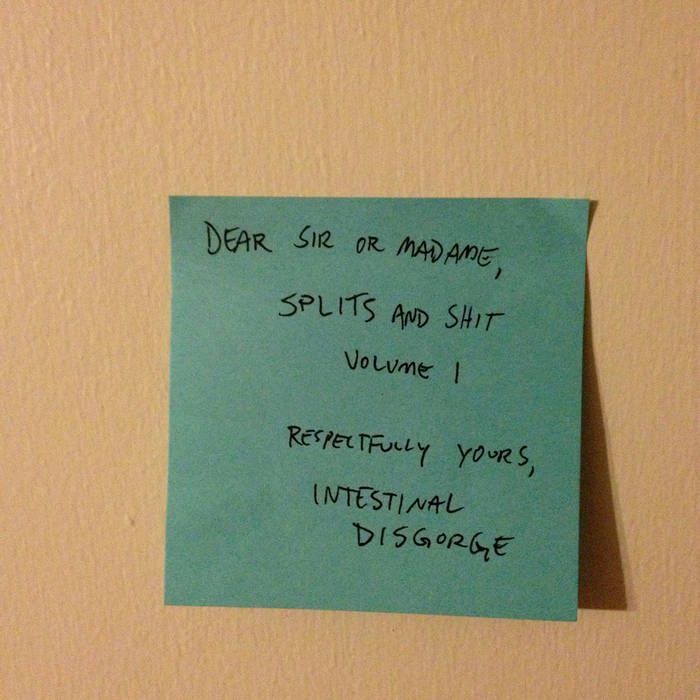 DEAR SIR OR MADAME,
SPLITS AND SHIT
VOLUME 1
RESPECTFULLY YOURS,
INTESTINAL
DISGORGE